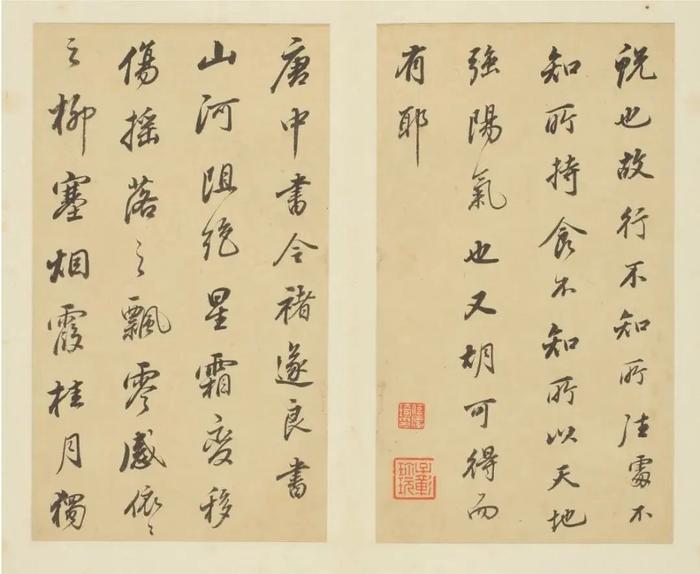 蛻也故行不知所往處不
知所持食不知所以天地
強陽氣也又胡可得而
有耶
唐中書令褚遂良書
山河阻絕星霜變移
傷搖落之飄零感依々
之柳塞烟霞桂月獨